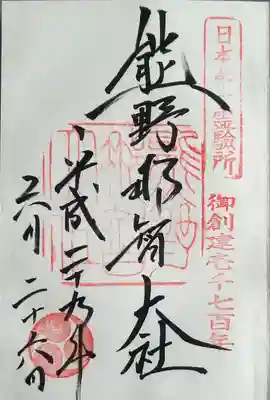 日本第一靈驗所
御創建壱千七百年
熊野那智大社
平成二十九年
六月二十六日